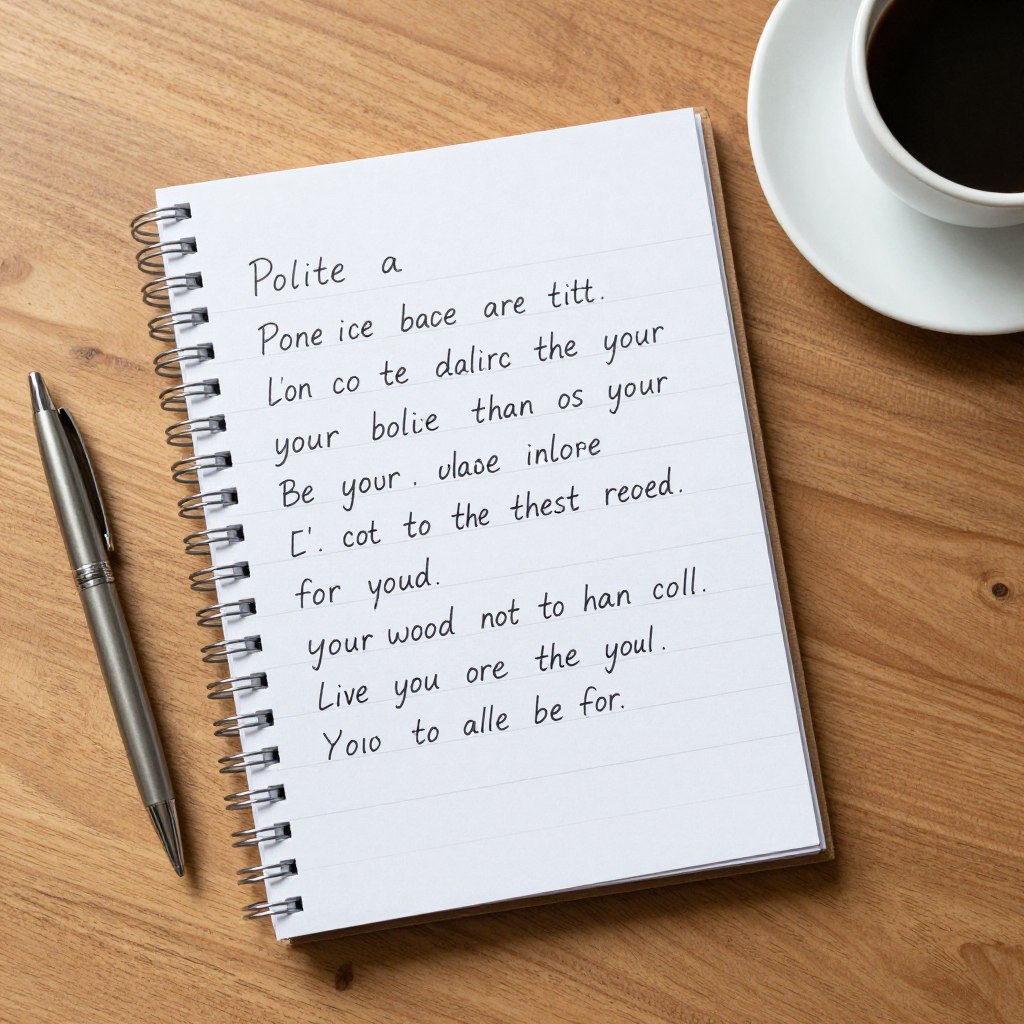 Polite a
Pone ice bace are titt.
L'on co te dalirc the your
your bolie than os your
Be your. ulase inlore
E'. cot to the thest reoed.
for youd.
your wood not to han coll.
Live you ore the youl.
Yoio to alle be for.